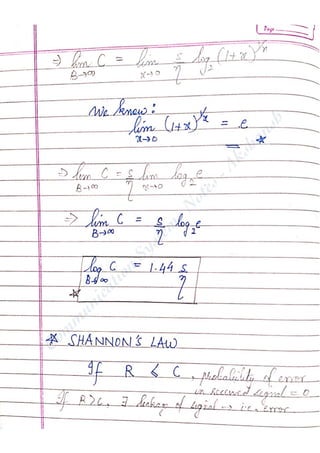 Page
⇒ lim C = lim s/η log₂ (1+x)^1/x
B→∞ x→0
We know:
lim (1+x)^1/x = e
x→0
⇒ lim C = s/η lim log₂e
B→∞ x→0
⇒ lim C = s/η log₂e
B→∞
log C = 1.44 s/η
B→∞
☆ SHANNON'S LAW
If R ≤ C, probability of error
in received signal = 0
If R>C, ∃ leakage of signal → i.e., error.